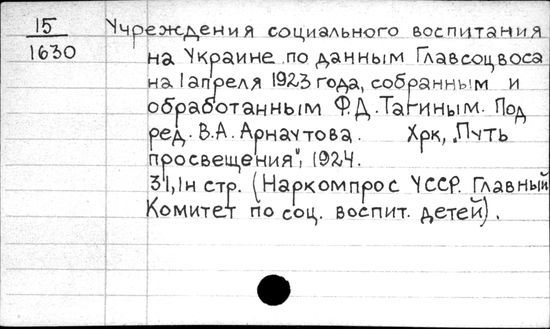 15
1630
Учреждения социального воспитания
на Украине по данным Главсоцвоса
на 1 апреля 1923 года, собранным и
обработанным Ф.Д. Тагиным. Под
ред. В.А. Арнаутова. Хрк, „Путь
просвещения", 1924.
31,1н стр. (Наркомпрос УССР. Главный
Комитет по соц. воспит. детей).